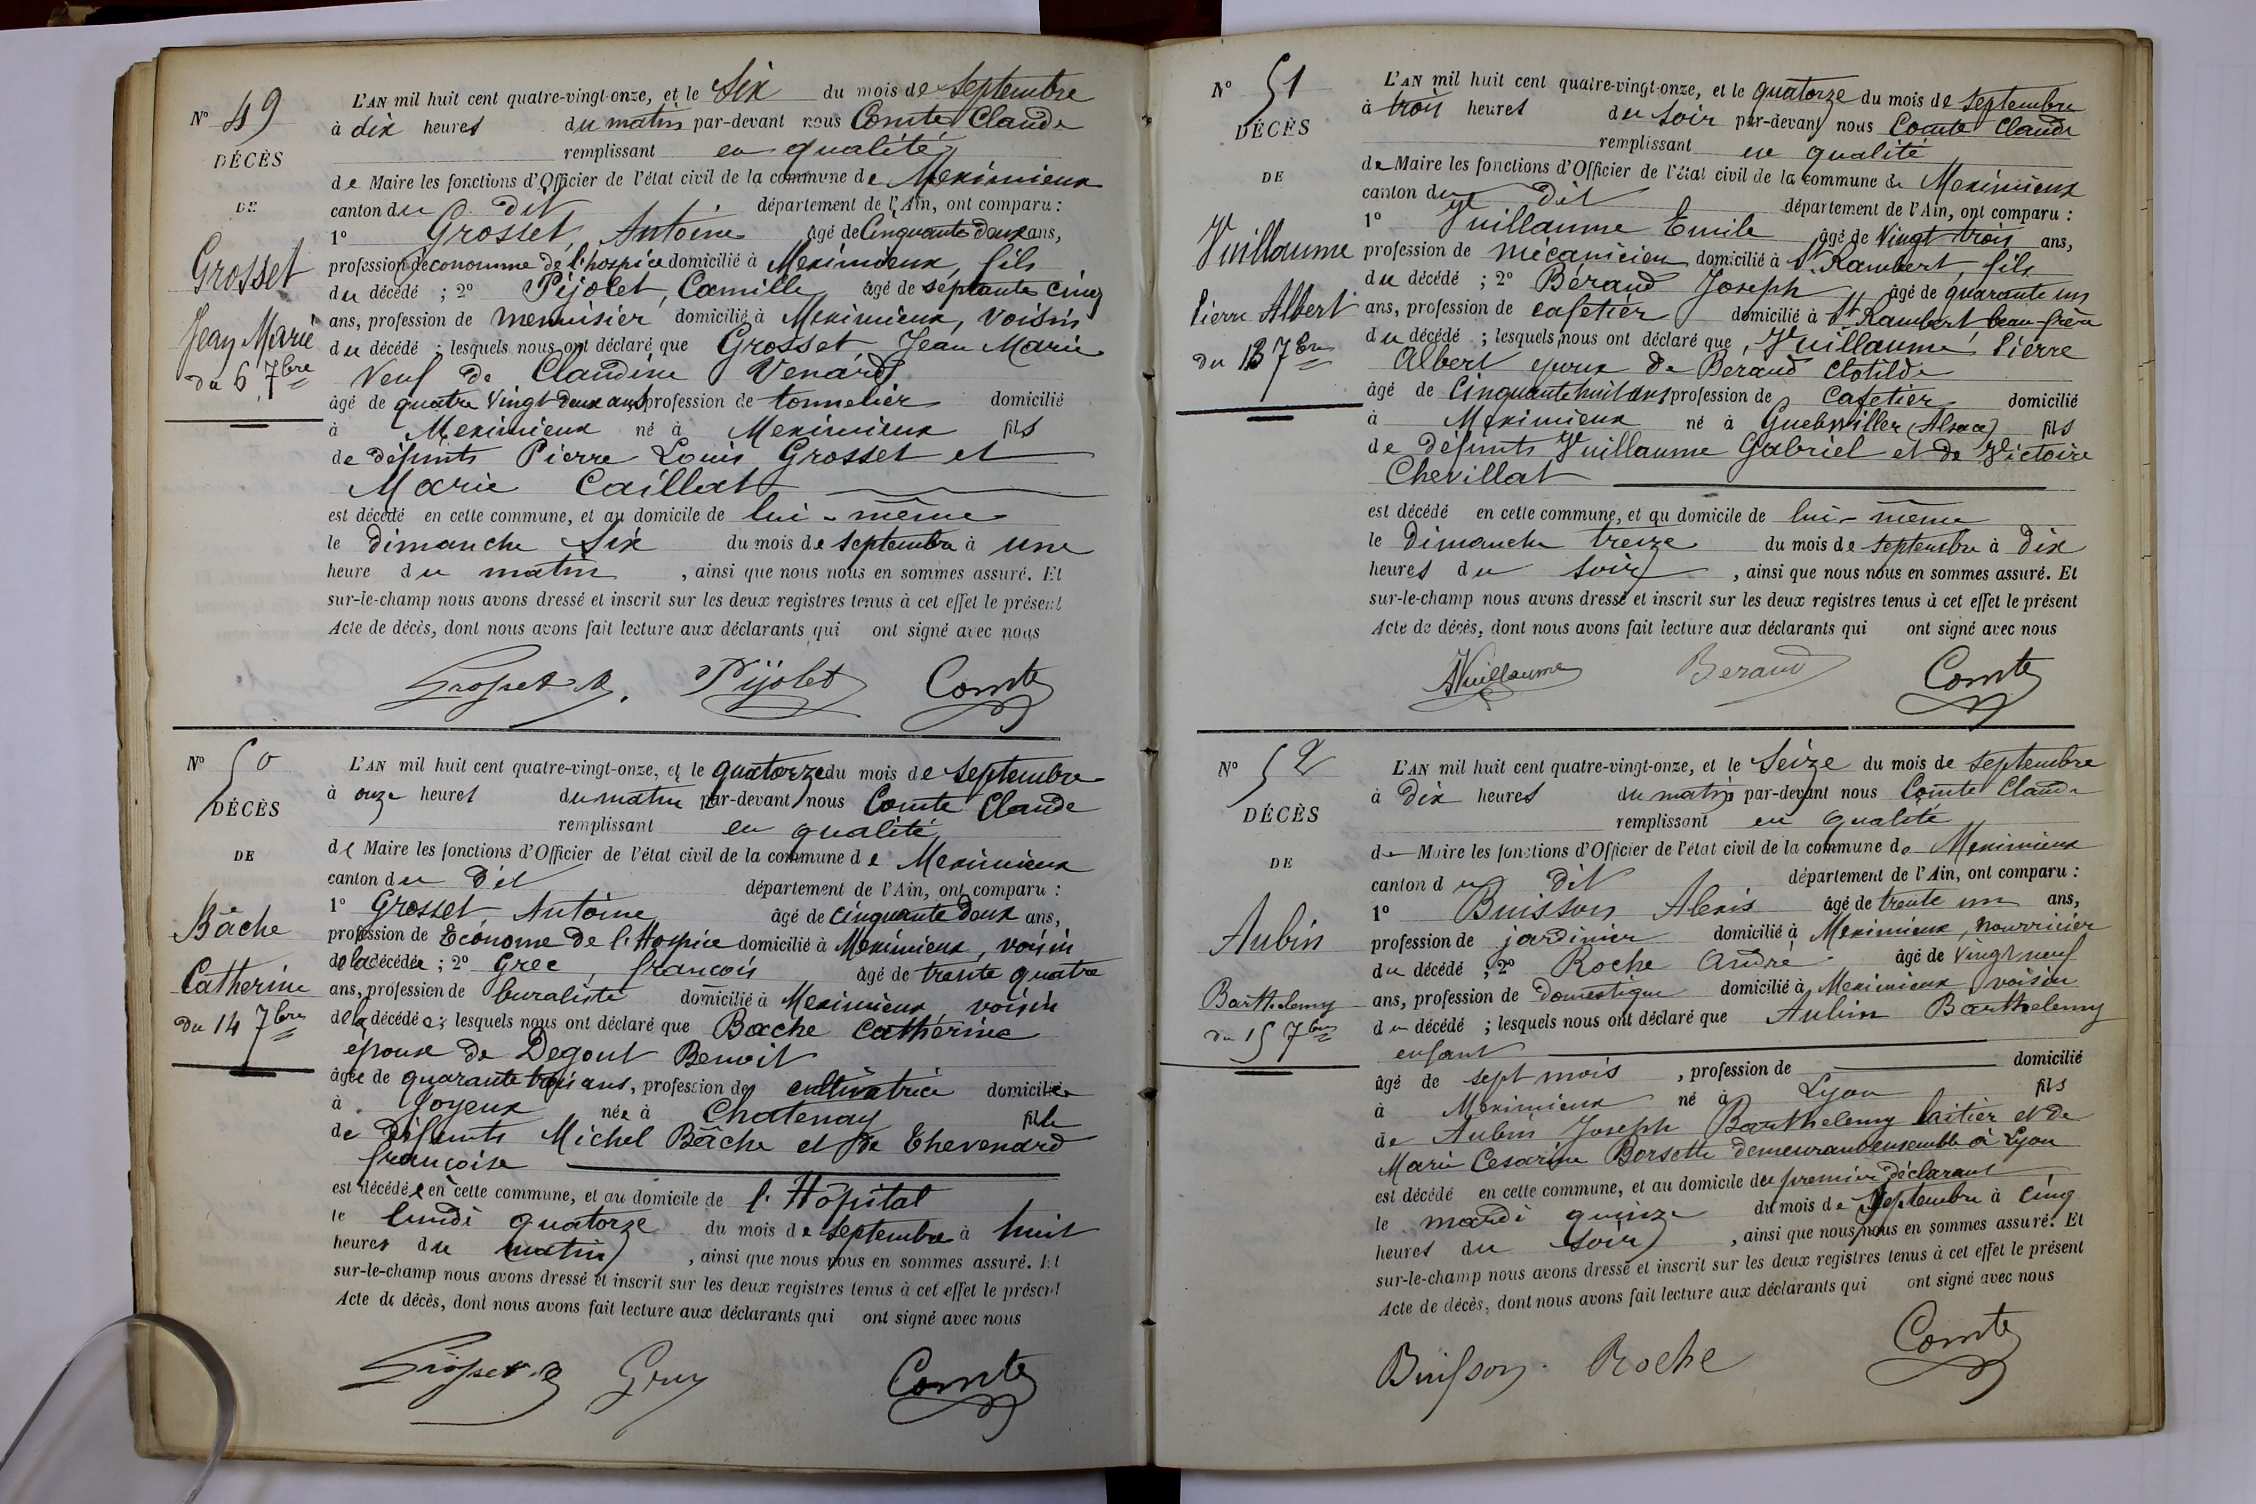 N° 49
DÉCÈS
DE
Grosset
Jean Marie
du 6 7bre
L'AN mil huit cent quatre-vingt-onze, et le Six du mois de Septembre
à dix heures du matin par-devant nous Comte Claude
remplissant en qualité
de Maire les fonctions d'Officier de l'état civil de la commune de Meximieux
canton du dit département de l'Ain, ont comparu :
1° Grosset, Antoine âgé de Cinquante deux ans,
profession d'econome de l'hospice domicilié à Meximieux, fils
du décédé ; 2° Pijolet, Camille âgé de septante cinq
ans, profession de menuisier domicilié à Meximieux, voisin
du décédé ; lesquels nous ont déclaré que Grosset Jean Marie
Veuf de Claudine Venard
âgé de quatre vingt deux ans, profession de tonnelier domicilié
à Meximieux né à Meximieux fils
de défunts Pierre Louis Grosset et
Marie Caillat
est décédé en cette commune, et au domicile de lui-même
le dimanche Six du mois de septembre à une
heure du matin, ainsi que nous nous en sommes assuré. Et
sur-le-champ nous avons dressé et inscrit sur les deux registres tenus à cet effet le présent
Acte de décès, dont nous avons fait lecture aux déclarants qui ont signé avec nous
Grosset A. Pijolet Comte
N° 50
DÉCÈS
DE
Bâche
Catherine
du 14 7bre
L'AN mil huit cent quatre-vingt-onze, et le quatorze du mois de septembre
à onze heures du matin par-devant nous Comte Claude
remplissant en qualité
de Maire les fonctions d'Officier de l'état civil de la commune de Meximieux
canton du dit département de l'Ain, ont comparu :
1° Grosset, Antoine âgé de cinquante deux ans,
profession de Econome de l'Hospice domicilié à Meximieux, voisin
de la décédée ; 2° Grec, françois âgé de trente quatre
ans, profession de buraliste domicilié à Meximieux voisin
de la décédée ; lesquels nous ont déclaré que Bache Cathérine
épouse de Degout Benoit
âgée de quarante trois ans, profession de cultivatrice domiciliée
à Joyeux née à Chatenay fille
de défunts Michel Bâche et de Thevenard
françoise
est décédée en cette commune, et au domicile de l'Hôpital
le lundi quatorze du mois de septembre à huit
heures du matin, ainsi que nous nous en sommes assuré. Et
sur-le-champ nous avons dressé et inscrit sur les deux registres tenus à cet effet le présent
Acte de décès, dont nous avons fait lecture aux déclarants qui ont signé avec nous
Grosset A Comte
N° 51
DÉCÈS
DE
Vuillaume
Pierre Albert
du 13 7bre
L'AN mil huit cent quatre-vingt-onze, et le quatorze du mois de septembre
à trois heures du soir par-devant nous Comte Claude
remplissant en qualité
de Maire les fonctions d'Officier de l'état civil de la commune de Meximieux
canton du dit département de l'Ain, ont comparu :
1° Vuillaume Emile âgé de Vingt trois ans,
profession de mécanicien domicilié à St Rambert, fils
du décédé ; 2° Béraud Joseph âgé de quarante un
ans, profession de cafetier domicilié à St Rambert beau-frère
du décédé ; lesquels nous ont déclaré que Vuillaume Pierre
Albert epoux de Beraud Clotilde
âgé de Cinquante huit ans profession de Cafetier domicilié
à Meximieux né à Guebwiller (Alsace) fils
de défunts Vuillaume Gabriel et de Victoire
Chevillat
est décédé en cette commune, et au domicile de lui-même
le Dimanche treize du mois de septembre à Dix
heures du soir, ainsi que nous nous en sommes assuré. Et
sur-le-champ nous avons dressé et inscrit sur les deux registres tenus à cet effet le présent
Acte de décès, dont nous avons fait lecture aux déclarants qui ont signé avec nous
Vuillaume Beraud Comte
N° 52
DÉCÈS
DE
Aubin
Barthelemy
du 15 7bre
L'AN mil huit cent quatre-vingt-onze, et le Seize du mois de septembre
à Dix heures du matin par-devant nous Comte Claude
remplissant en qualité
de Maire les fonctions d'Officier de l'état civil de la commune de Meximieux
canton du dit département de l'Ain, ont comparu :
1° Buisson Alexis âgé de trente un ans,
profession de jardinier domicilié à Meximieux, nourricier
du décédé ; 2° Roche André âgé de Vingt neuf
ans, profession de Domestique domicilié à Meximieux voisin
du décédé ; lesquels nous ont déclaré que Aubin Barthelemy
enfant
âgé de sept mois, profession de domicilié
à Meximieux né à Lyon fils
de Aubin Joseph Barthelemy laitier et de
Marie Cesarine Borsette demeurant ensemble à Lyon
est décédé en cette commune, et au domicile du premier déclarant
le mardi quinze du mois de Septembre à Cinq
heures du soir, ainsi que nous nous en sommes assuré. Et
sur-le-champ nous avons dressé et inscrit sur les deux registres tenus à cet effet le présent
Acte de décès, dont nous avons fait lecture aux déclarants qui ont signé avec nous
Buisson Roche Comte